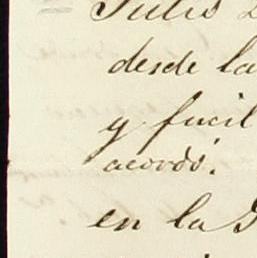 Julio 2
desde la
y fucil
acordó.
en la G